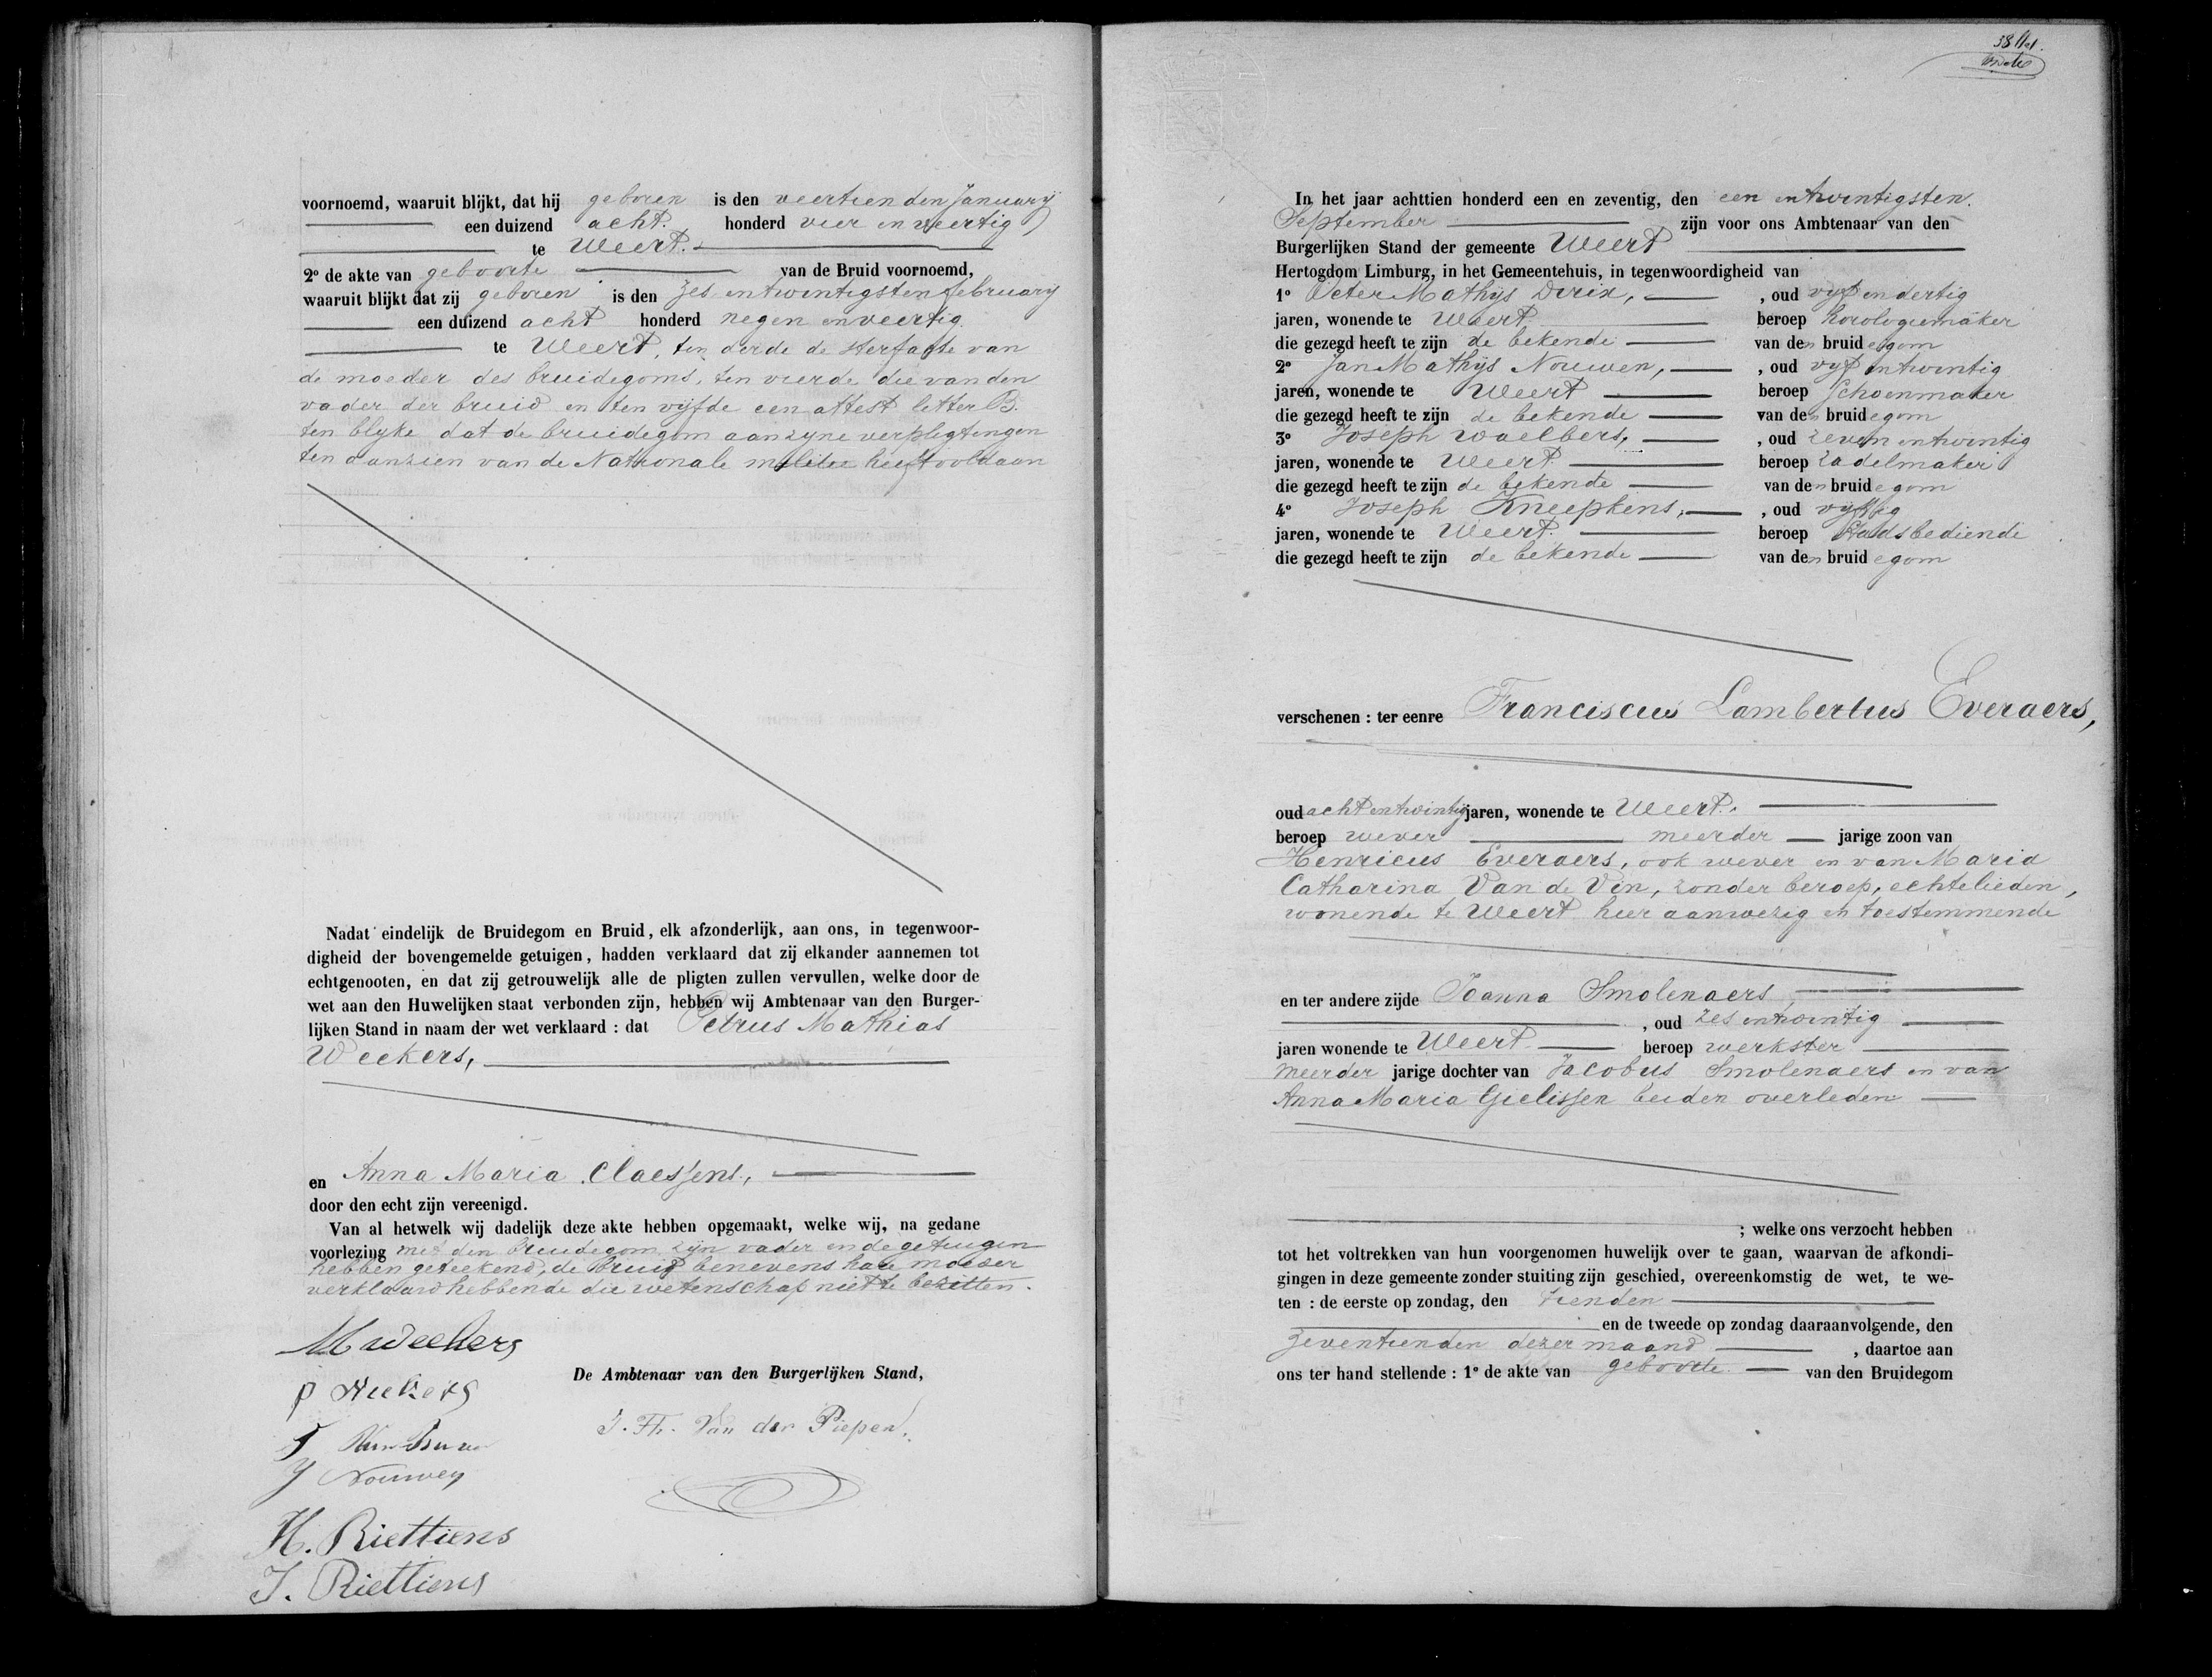 voornoemd, waaruit blijkt, dat hij geboren is den veertienden January
een duizend acht honderd vier en veertig
te Weert.
2º de akte van geboorte van de Bruid voornoemd,
waaruit blijkt dat zij geboren is den zes en twintigsten february
een duizend acht honderd negen en veertig
te Weert, ten derde de sterfacte van
de moeder des bruidegoms, ten vierde die van den
vader der bruid en ten vijfde een attest letter B.
ten blyke dat de bruidegom aan zyne verpligtingen
ten aanzien van de Nationale militie heeft voldaan
Nadat eindelijk de Bruidegom en Bruid, elk afzonderlijk, aan ons, in tegenwoor-
digheid der bovengemelde getuigen, hadden verklaard dat zij elkander aannemen tot
echtgenooten, en dat zij getrouwelijk alle de pligten zullen vervullen, welke door de
wet aan den Huwelijken staat verbonden zijn, hebben wij Ambtenaar van den Burger-
lijken Stand in naam der wet verklaard : dat Petrus Mathias
Weekers,
en Anna Maria Claessens,
door den echt zijn vereenigd.
Van al hetwelk wij dadelijk deze akte hebben opgemaakt, welke wij, na gedane
voorlezing met den bruidegom zijn vader en de getuigen
hebben geteekend, de bruid benevens hare moeder
verklaard hebbende die wetenschap niet te bezitten.
M weekers
De Ambtenaar van den Burgerlijken Stand,
J. Fr. Van der Piepen
J Nouwen
H. Riettiens
J. Riettiens
In het jaar achttien honderd een en zeventig, den een en twintigsten
September zijn voor ons Ambtenaar van den
Burgerlijken Stand der gemeente Weert
Hertogdom Limburg, in het Gemeentehuis, in tegenwoordigheid van
1º Peter Mathijs Dirix, , oud vyf en dertig
jaren, wonende te Weert beroep horologiemaker
die gezegd heeft te zijn de bekende van den bruidegom
2º Jan Mathijs Nouwen, , oud vyf en twintig
jaren, wonende te Weert beroep Schoenmaker
die gezegd heeft te zijn de bekende van den bruidegom
3º Joseph Waelbers, , oud zeven en twintig
jaren, wonende te Weert beroep zadelmaker
die gezegd heeft te zijn de bekende van den bruidegom
4º Joseph Kneepkens, , oud vyftig
jaren, wonende te Weert. beroep Stadsbediende
die gezegd heeft te zijn de bekende van den bruidegom
verschenen : ter eenre Franciscus Lambertus Everaers,
oud acht en twintig jaren, wonende te Weert.
beroep wever meerder jarige zoon van
Henricus Everaers, ook wever en van Maria
Catharina Van de Vin, zonder beroep, echtelieden,
wonende te Weert hier aanwezig en toestemmende
en ter andere zijde Joanna Smolenaers,
, oud zes en twintig
jaren wonende te Weert beroep werkster
meerder jarige dochter van Jacobus Smolenaers en van
Anna Maria Gielissen beiden overleden
; welke ons verzocht hebben
tot het voltrekken van hun voorgenomen huwelijk over te gaan, waarvan de afkondi-
gingen in deze gemeente zonder stuiting zijn geschied, overeenkomstig de wet, te we-
ten : de eerste op zondag, den tienden
en de tweede op zondag daaraanvolgende, den
zeventienden dezer maand , daartoe aan
ons ter hand stellende : 1º de akte van geboorte van den Bruidegom